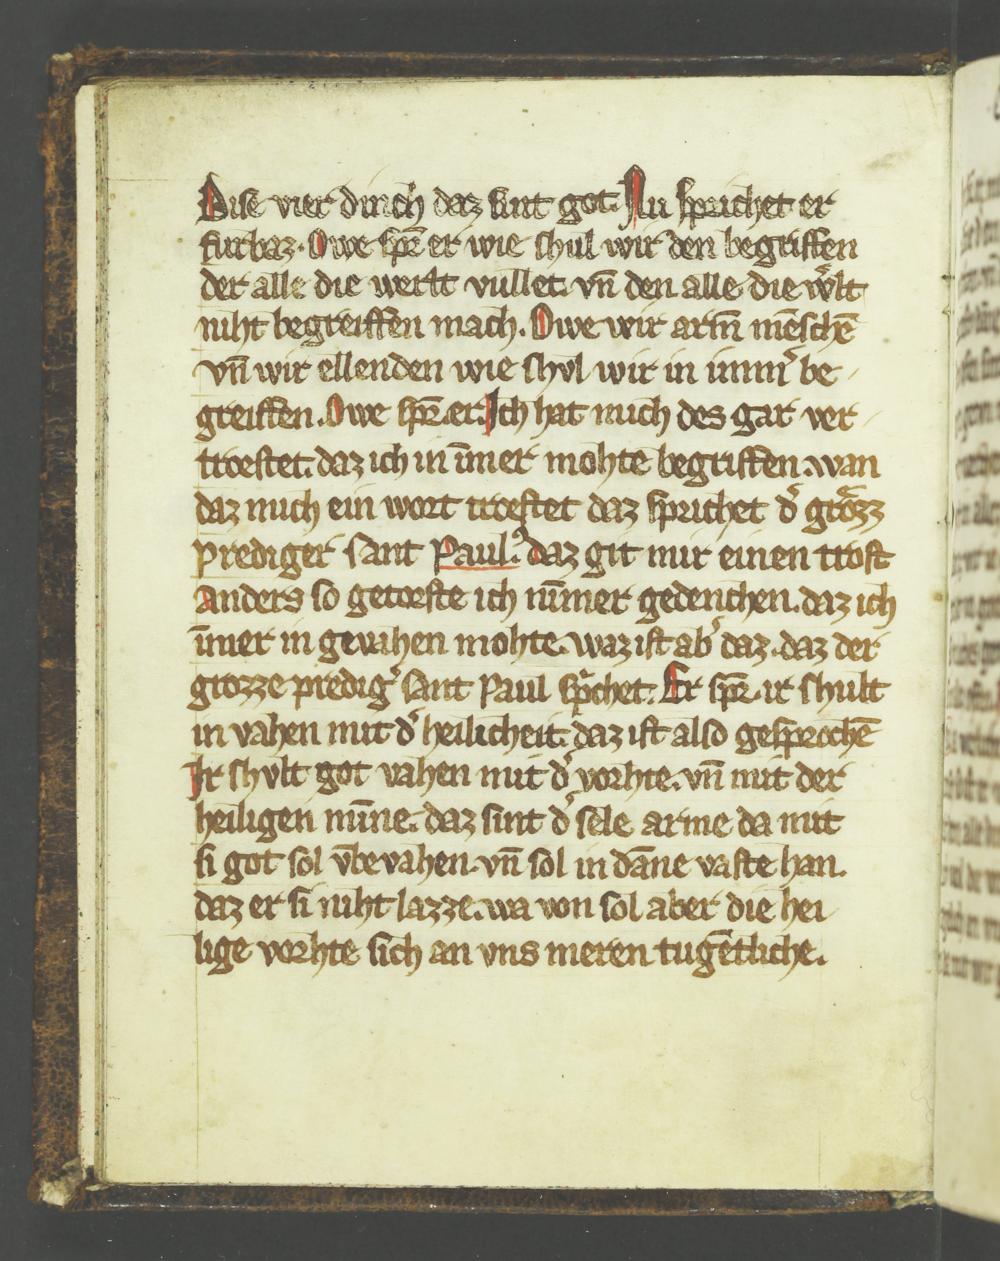 Dise vier dinch daz sint got. Nu sprichet er
furbaz. Owe spr̄ er wie shul wir den begriffen
der alle die werlt vullet. vn̄ den alle die w̉lt
niht begreiffen mach. Owe wir arm̄ mēschē
vn̄ wir ellenden wie shvl wir in imm̉ be
greiffen. Owe spr̄. er. Ich hat mich des gar ver
troestet. daz ich in ūmer mohte begriffen. wan
daz mich ein wort troestet daz sprichet d̉ grozz
prediger sant Paul. daz git mir einen trost
Anders so getoerste ich nūmer gedenchen. daz ich
ūmer in gevahen mohte. waz ist ab̉ daz. daz der
grozze predig̉ sant Paul sprichet. Er spr̄. ir shult
in vahen mit d̉ heilicheit. daz ist also gesprochē
Ir shvlt got vahen mit d̉ vorhte. vn̄ mit der
heiligen mīne. daz sint d̉ sele arme da mit
si got sol vmbevahen. vn̄ sol in dāne vaste han.
daz er si niht lazze. wa von sol aber die hei
lige vorhte sich an vns meren tugētliche.